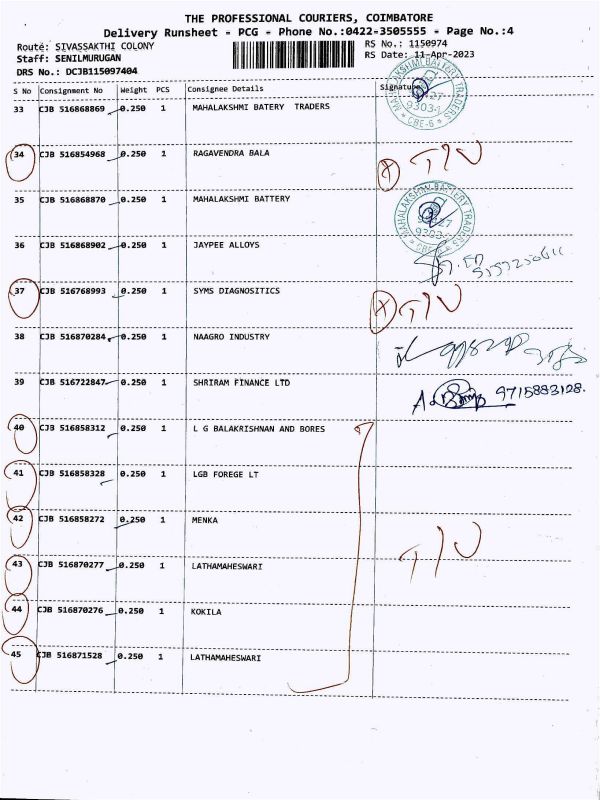 THE PROFESSIONAL COURIERS, COIMBATORE
Delivery Runsheet - PCG - Phone No.:0422-3505555 - Page No.:4
Route: SIVASSAKTHI COLONY RS No.: 1150974
Staff: SENILMURUGAN RS Date: 11-Apr-2023
DRS No.: DCJB115097404
S No Consignment No Weight PCS Consignee Details Signature
33 CJB 516868869 0.250 1 MAHALAKSHMI BATERY TRADERS
MAHALAKSHMI BATTERY TRADERS
9303-2
* CBE-6 *
34 CJB 516854968 0.250 1 RAGAVENDRA BALA
35 CJB 516868870 0.250 1 MAHALAKSHMI BATTERY
MAHALAKSHMI BATTERY TRADERS
36 CJB 516868902 0.250 1 JAYPEE ALLOYS
37 CJB 516768993 0.250 1 SYMS DIAGNOSITICS
38 CJB 516870284 0.250 1 NAAGRO INDUSTRY
39 CJB 516722847 0.250 1 SHRIRAM FINANCE LTD 9715883128.
40 CJB 516858312 0.250 1 L G BALAKRISHNAN AND BORES
41 CJB 516858328 0.250 1 LGB FOREGE LT
42 CJB 516858272 0.250 1 MENKA
43 CJB 516870277 0.250 1 LATHAMAHESWARI
44 CJB 516870276 0.250 1 KOKILA
45 CJB 516871528 0.250 1 LATHAMAHESWARI